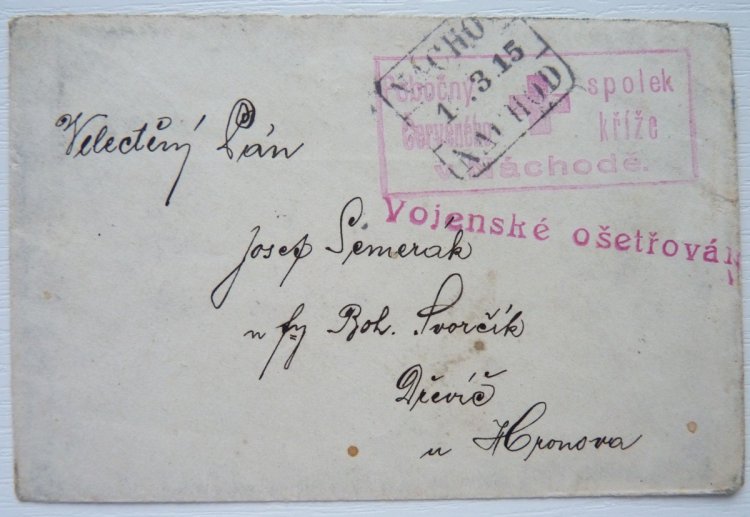 NÁCHO
1 .3.15
NÁCHOD
Pobočný spolek
červeného kříže
v Náchodě.
Vojenské ošetřová
Velectěný Pán
Josef Semerák
u fy Boh. Svorčík
Dřevíč
u Hronova